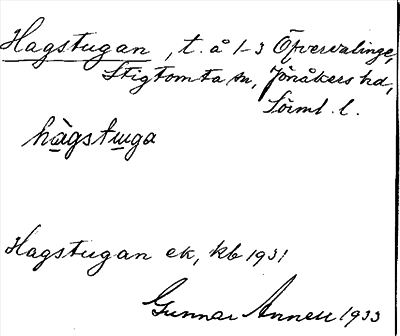 Hagstugan, t. å 1-3 Öfvervalinge,
Stigtomta sn, Jönåkers hd,
Sörml. l.
hàgstuga
Hagstugan ek, kb 1931
Gunnar Annell 1933